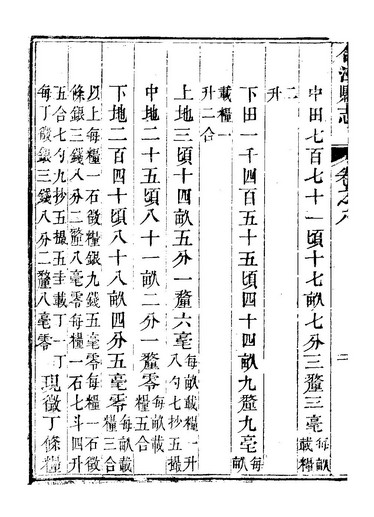 合江縣志
卷之八
中田七百七十一頃十七畝七分三釐三毫每畝載糧
二升
下田一千四百五十五頃四十四畝九釐九毫每畝
載糧一升二合
上地三頃十四畝五分一釐六毫每畝載糧一升八勺七抄五撮
中地二十五頃八十一畝二分一釐零每畝載糧五合
下地二百四十頃八十八畝四分五毫零每畝載糧三合
以上每糧一石徵糧銀九錢五毫零每糧一石徵
條銀三錢八分二釐八毫零每糧一石七斗四升
五合七勺九抄五撮五圭載丁一丁
每丁徵銀三錢八分二釐八毫零
現徵丁條糧